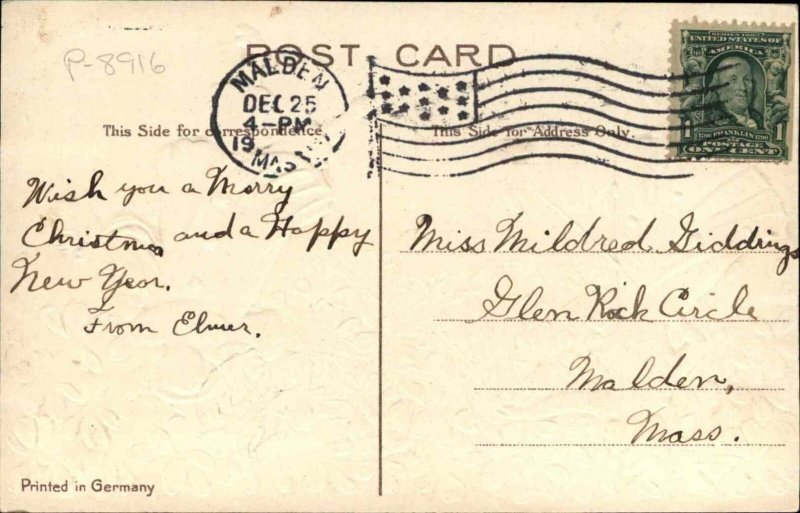 P-8916
POST CARD
MALDEN
DEC 25
4-PM
19
MASS
SERIES 1902
UNITED STATES OF
AMERICA
1 FRANKLIN 1
POSTAGE
ONE CENT
This Side for correspondence
This Side for Address Only.
Wish you a Merry
Christmas and a Happy
New Year.
From Elmer.
Miss Mildred Giddings
Glen Rock Circle
Malden,
Mass.
Printed in Germany